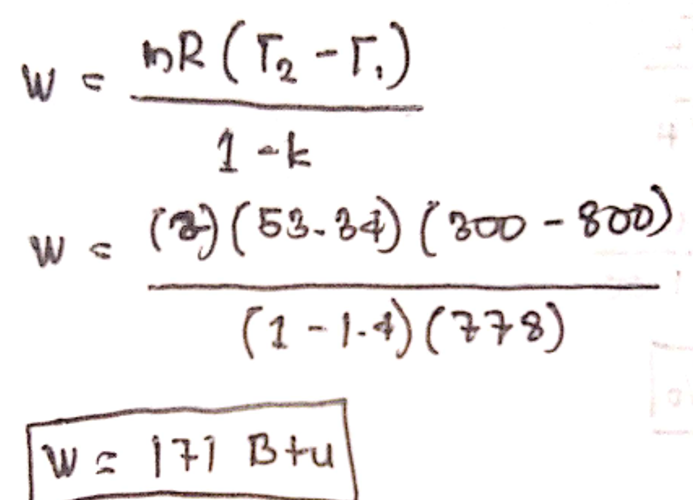 W = mR(T₂ - T₁)
1 - k
W = (2)(53.34)(300 - 800)
(1 - 1.4)(778)
W = 171 Btu